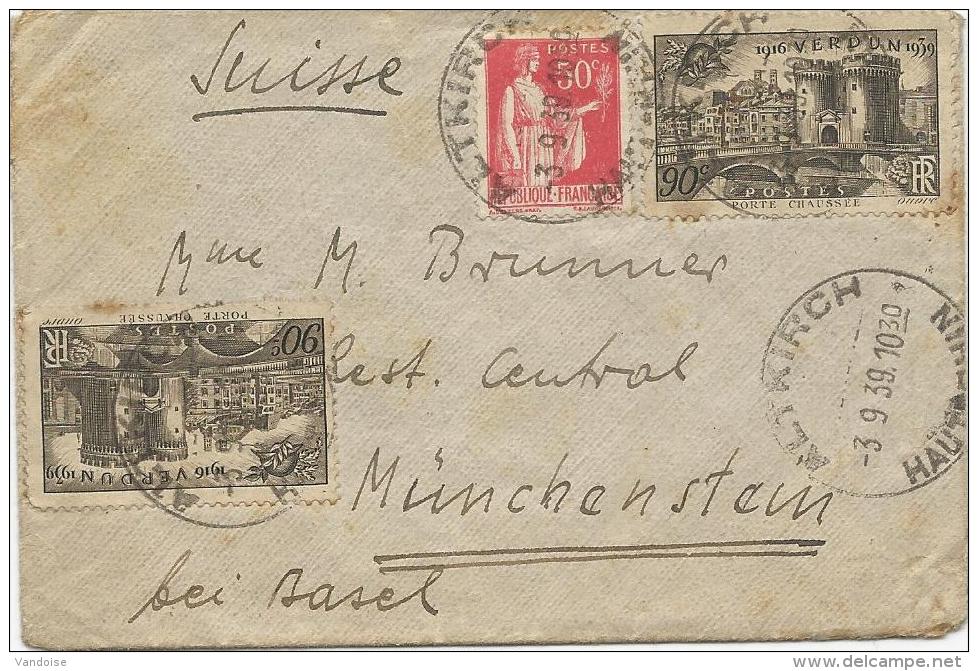 Suisse
POSTES
50c
RÉPUBLIQUE FRANÇAISE
1916 VERDUN 1939
90c
POSTES
PORTE CHAUSSÉE
OUVRÉ
RF
ALTKIRCH
-3 9 39.10
ALTKIRCH
Mme M. Brunner
Rest. Central
Münchenstein
bei Basel
1916 VERDUN 1939
90c
POSTES
PORTE CHAUSSÉE
OUVRÉ
RF
ALTKIRCH
-3 9 39.1030
HAUT
Vandoise
delcampe.net